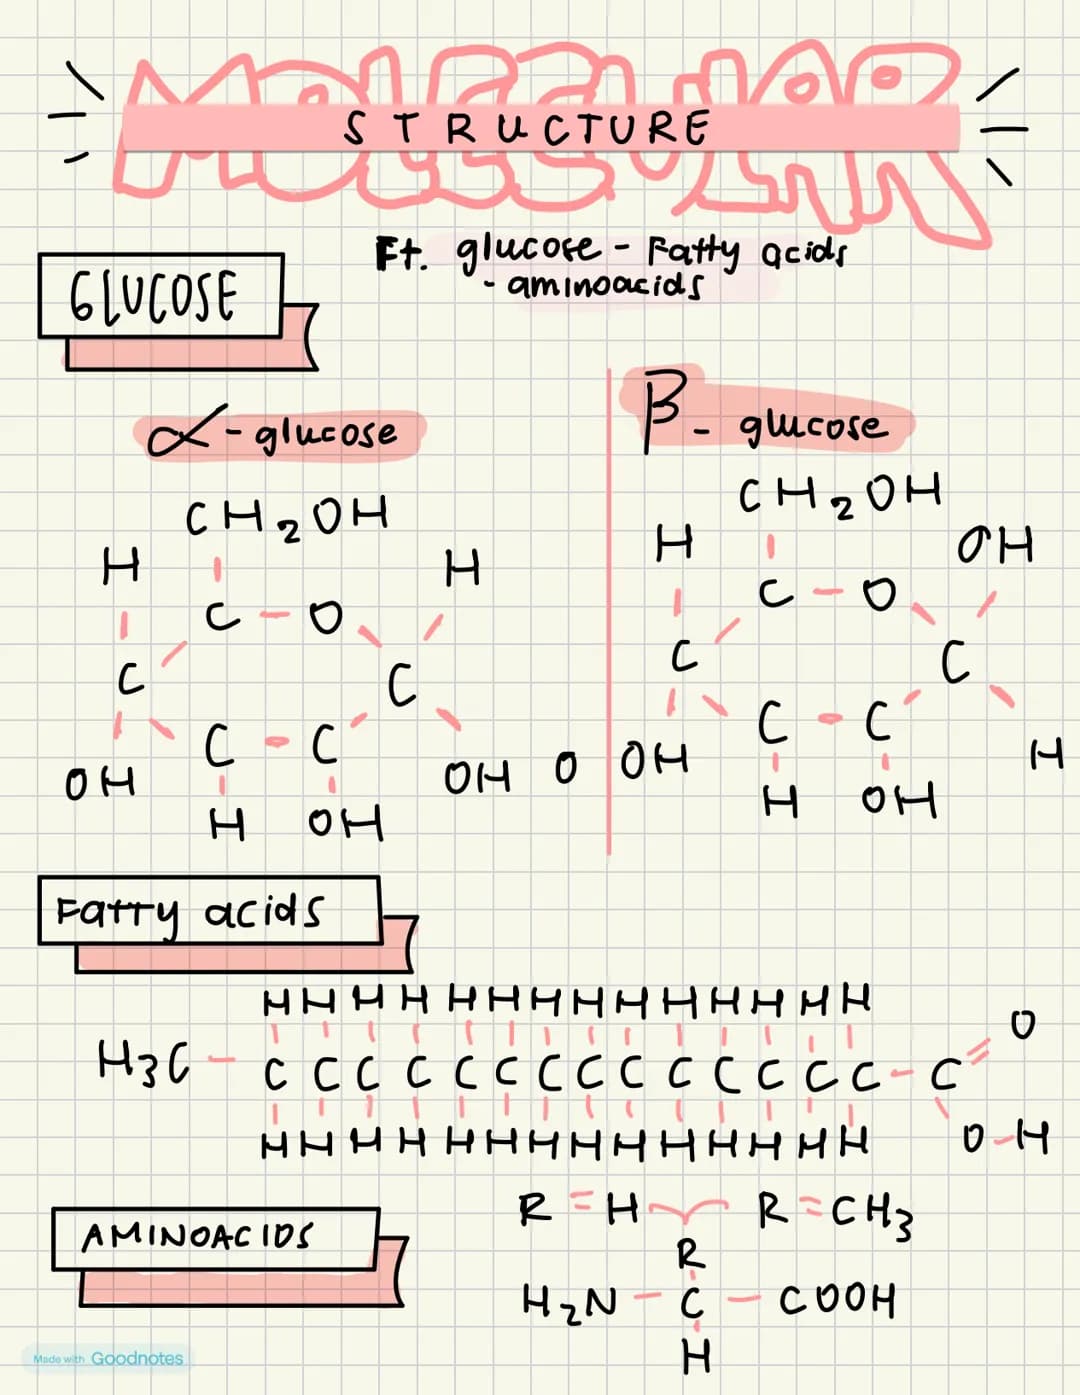 MOLECULAR
STRUCTURE
Ft. glucose - Fatty acids
- aminoacids
GLUCOSE
α - glucose
CH2OH
H H
C O
C C
C C
OH OH
H OH
O
β - glucose
CH2OH
H OH
C O
C C
C C
OH H
H OH
Fatty acids
H H H H H H H H H H H H H H O
H3C - C C C C C C C C C C C C C C - C
H H H H H H H H H H H H H H O-H
AMINOACIDS
R = H R = CH3
R
H2N - C - COOH
H
Made with Goodnotes